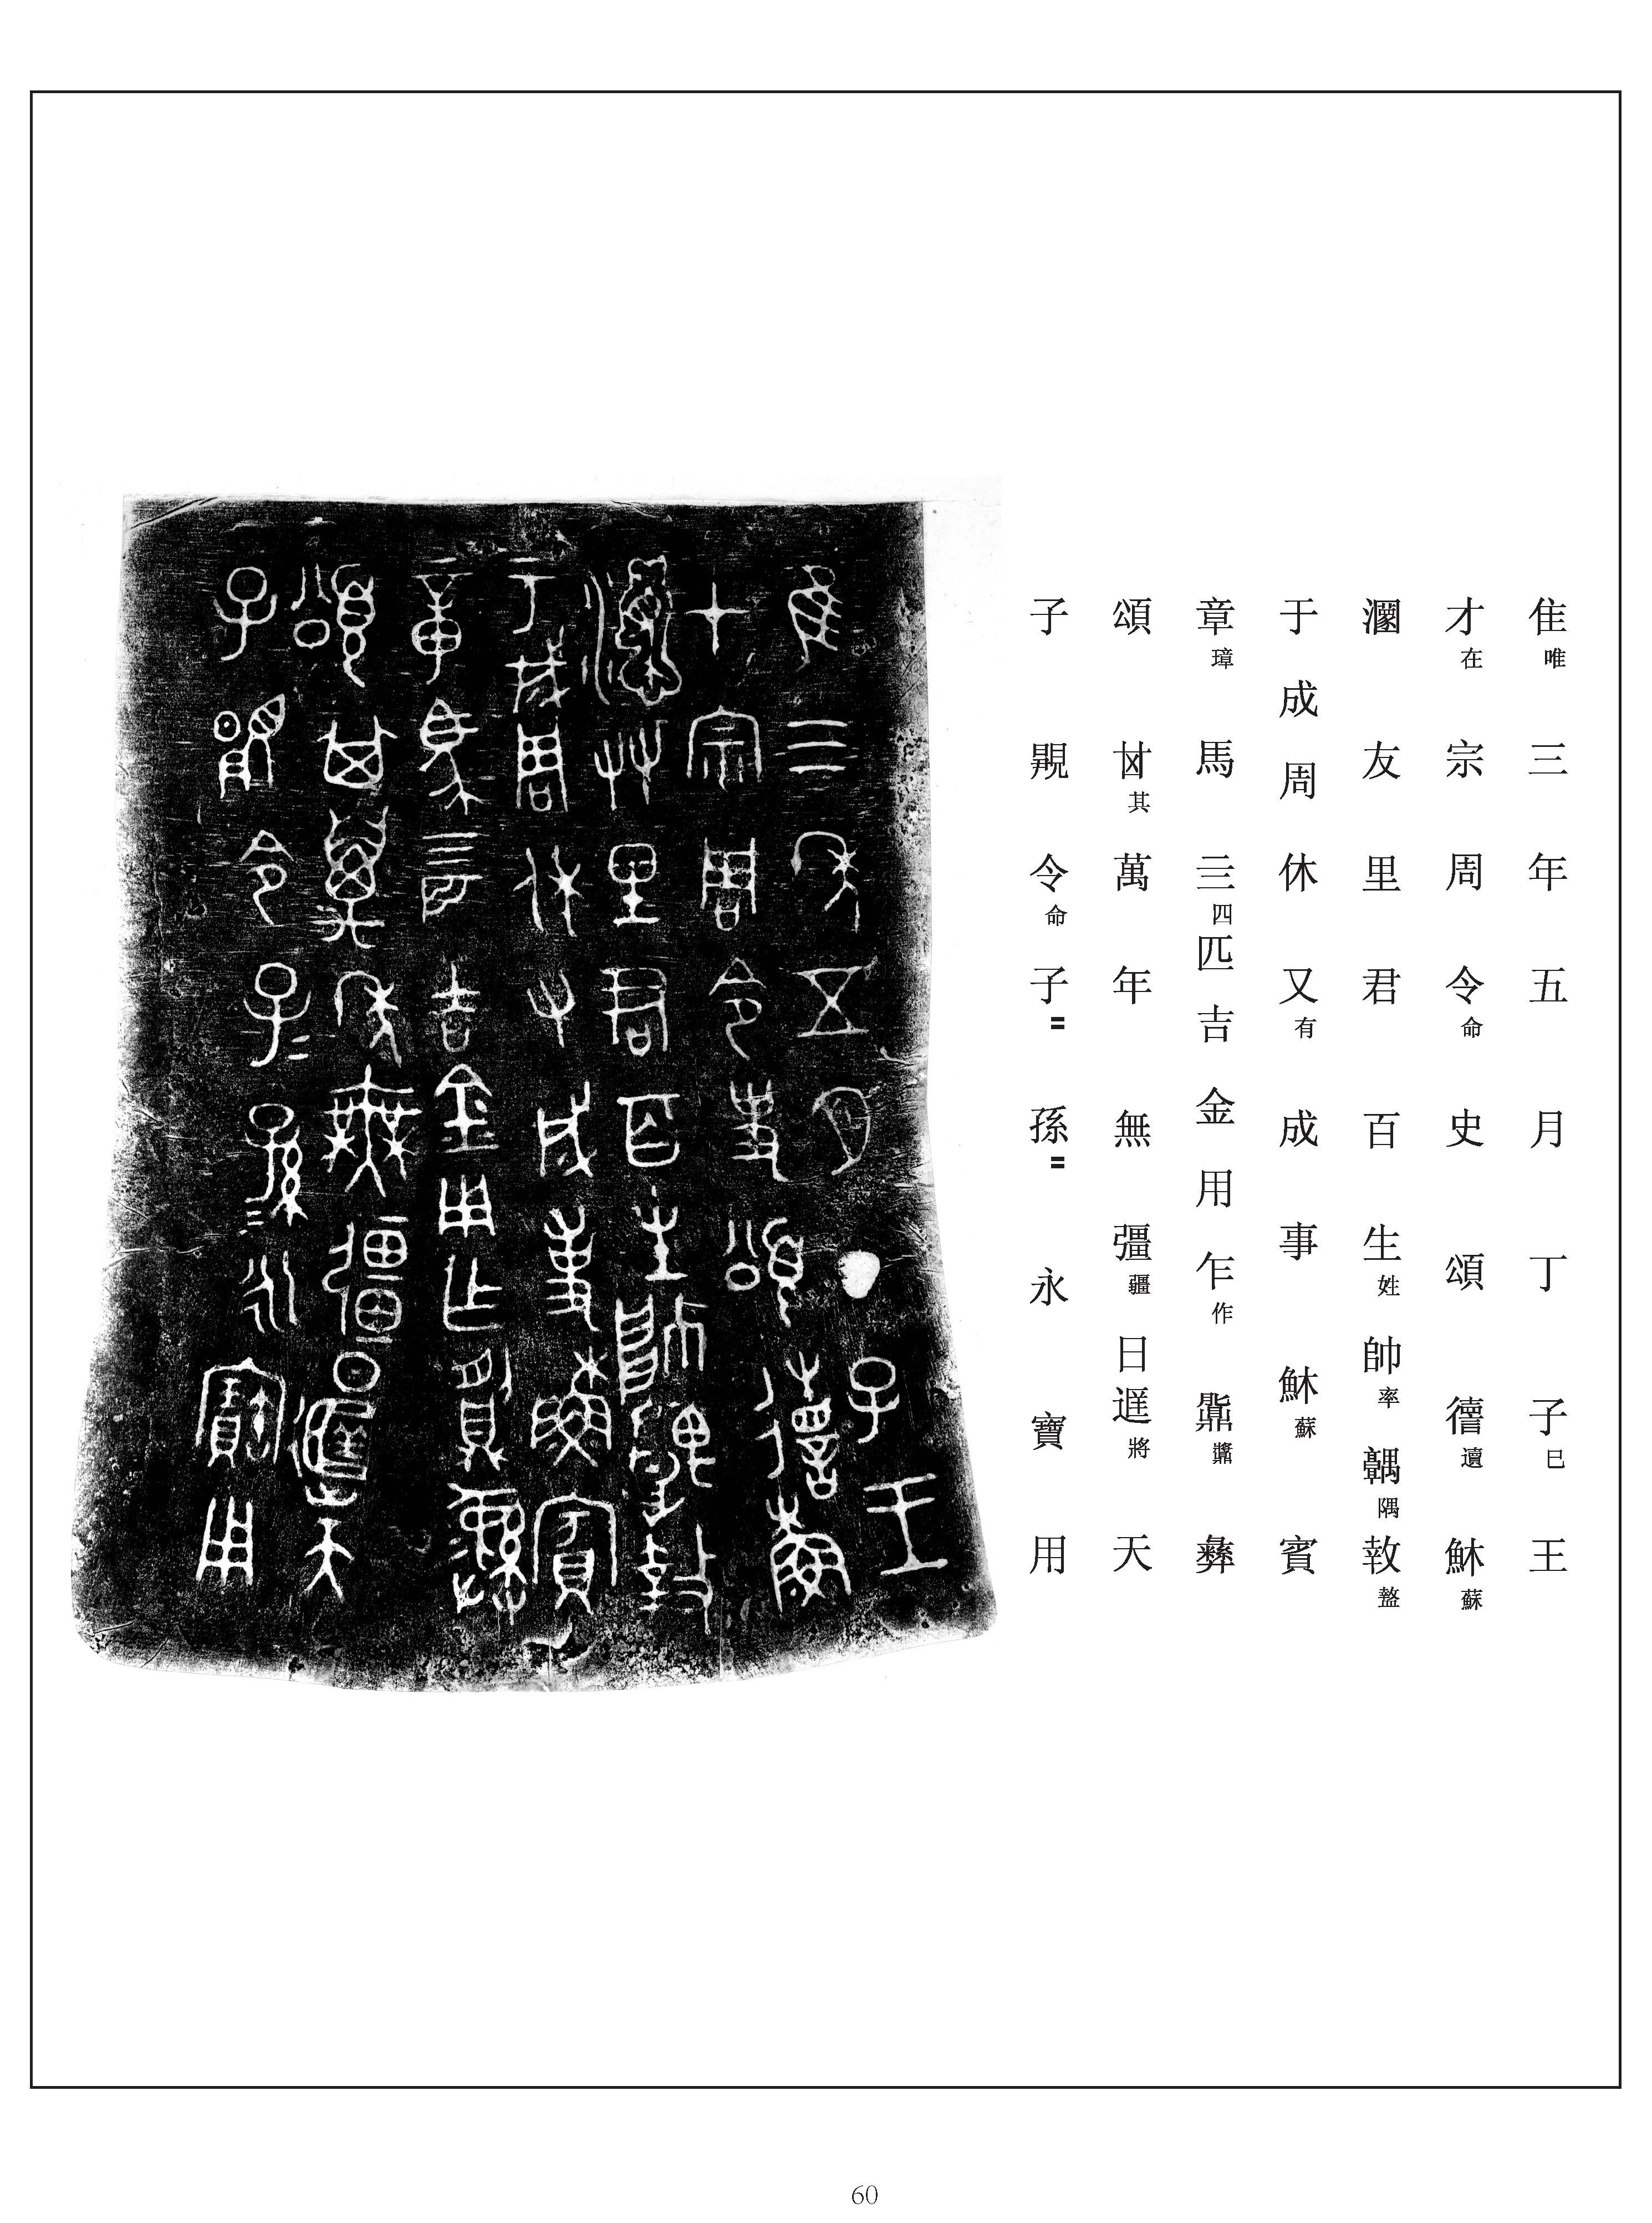 隹唯三年五月丁子巳王
才在宗周令命史頌穌蘇
友里君百生姓帥率隅盩
于成周休又有成事穌蘇賓
章璋馬亖四匹吉金用乍作彝
頌其萬年無彊疆日將天
子令命子〓孫〓永寶用
60